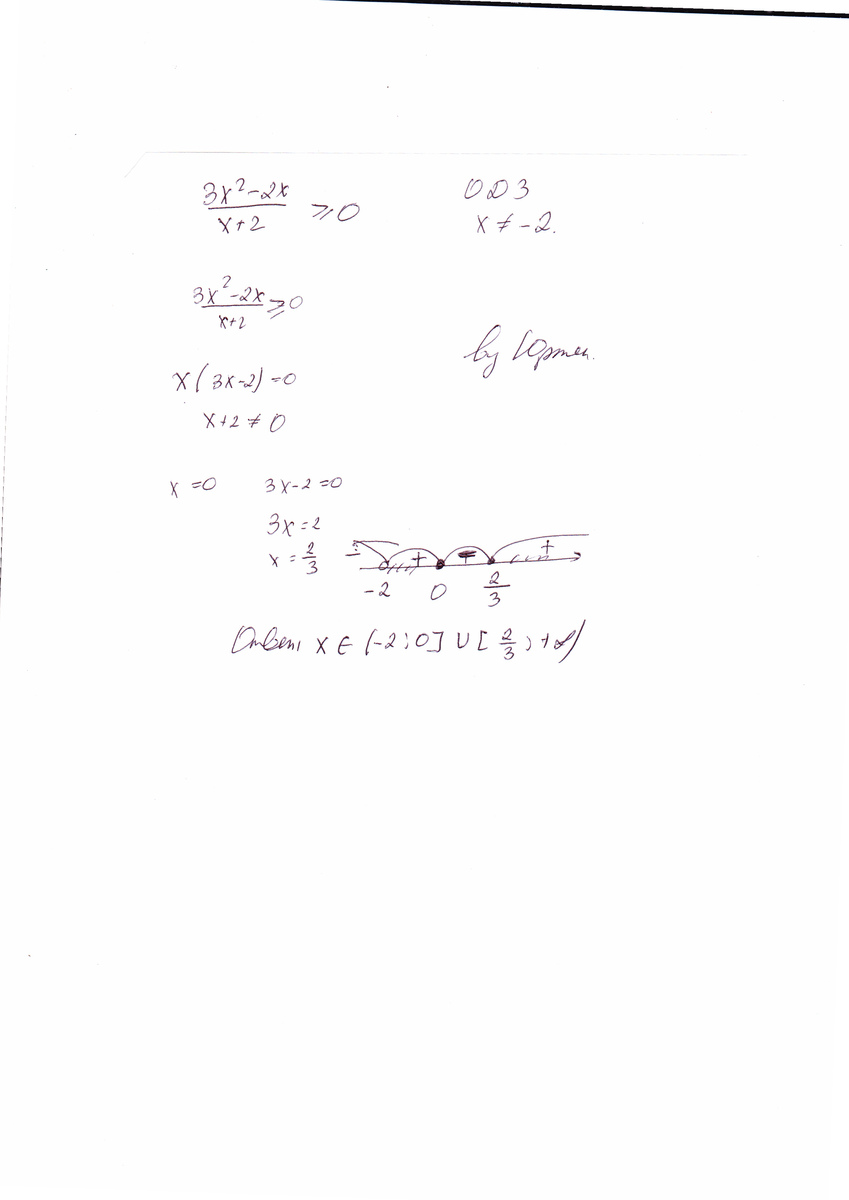 3x²-2x / x+2 ≥ 0
ОДЗ
x ≠ -2.
3x²-2x / x+2 ≥ 0
by
x(3x-2)=0
x+2 ≠ 0
x=0 3x-2=0
3x=2
x = 2/3
- + - +
-2 0 2/3
Ответ: x ∈ (-2; 0] ∪ [2/3; +∞)